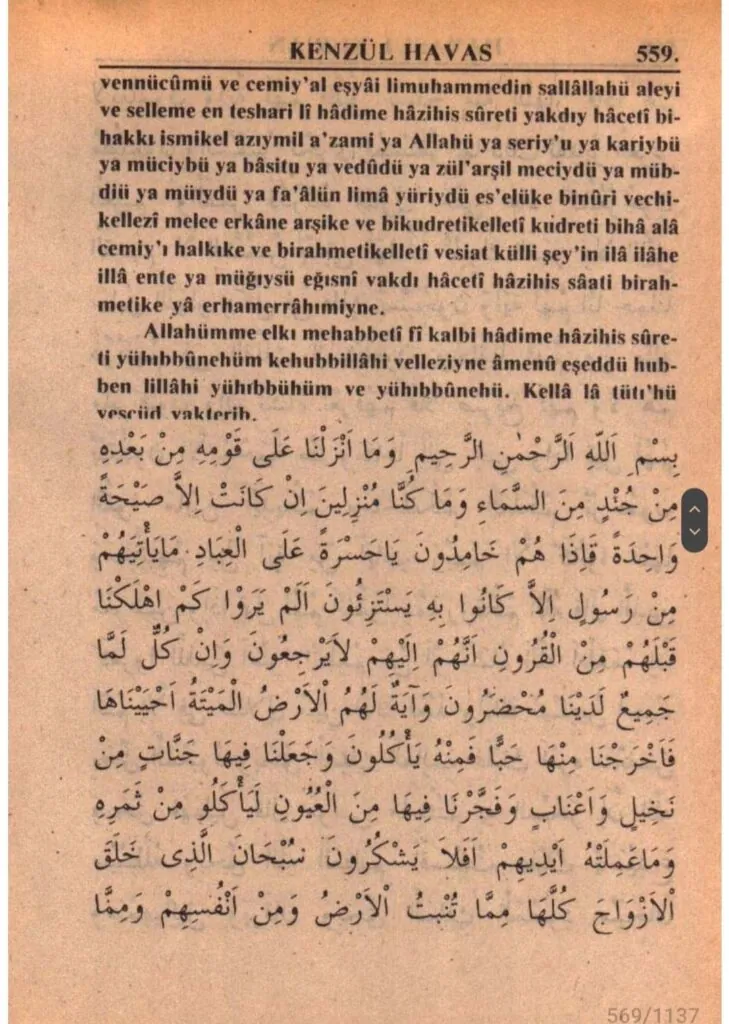 KENZÜL HAVAS 559.
vennücûmü ve cemiy'al eşyâi limuhammedin sallâllahü aleyi
ve selleme en teshari lî hâdime hâzihis sûreti yakdıy hâcetî bi-
hakkı ismikel azıymil a'zami ya Allahü ya seriy'u ya kariybü
ya müciybü ya bâsitu ya vedûdü ya zül'arşil meciydü ya müb-
diü ya müıydü ya fa'âlün limâ yüriydü es'elüke binûri vechi-
kellezî melee erkâne arşike ve bikudretikelletî kudreti bihâ alâ
cemiy'ı halkıke ve birahmetikelletî vesiat külli şey'in ilâ ilâhe
illâ ente ya müğıysü eğısnî vakdı hâcetî hâzihis sâati birah-
metike yâ erhamerrâhımiyne.
Allahümme elkı mehabbetî fî kalbi hâdime hâzihis sûre-
ti yühıbbûnehüm kehubbillâhi velleziyne âmenû eşeddü hub-
ben lillâhi yühıbbühüm ve yühıbbûnehü. Kellâ lâ tütı'hü
vescüd vakterib.
بِسْمِ اَللّٰهِ اَلرَّحْمٰنِ الرَّحِيمِ وَمَا اَنْزَلْنَا عَلَى قَوْمِهِ مِنْ بَعْدِهِ
مِنْ جُنْدٍ مِنَ السَّمَاءِ وَمَا كُنَّا مُنْزِلِينَ اِنْ كَانَتْ اِلاَّ صَيْحَةً
وَاحِدَةً فَاِذَا هُمْ خَامِدُونَ يَاحَسْرَةً عَلَى الْعِبَادِ مَايَأْتِيَهُمْ
مِنْ رَسُولٍ اِلاَّ كَانُوا بِهِ يَسْتَزِئُونَ اَلَمْ يَرَوْا كَمْ اَهْلَكْنَا
قَبْلَهُمْ مِنَ الْقُرُونِ اَنَّهُمْ اِلَيْهِمْ لاَيَرْجِعُونَ وَاِنْ كُلٌّ لَمَّا
جَمِيعٌ لَدَيْنَا مُحْضَرُونَ وَآيَةٌ لَهُمُ اْلاَرْضُ الْمَيْتَةُ اَحْيَيْنَاهَا
فَاَخْرَجْنَا مِنْهَا حَبًّا فَمِنْهُ يَأْكُلُونَ وَجَعَلْنَا فِيهَا جَنَّاتٍ مِنْ
نَخِيلٍ وَاَعْنَابٍ وَفَجَّرْنَا فِيهَا مِنَ الْعُيُونِ لِيَأْكُلُو مِنْ ثَمَرِهِ
وَمَاعَمِلَتْهُ اَيْدِيهِمْ اَفَلاَ يَشْكُرُونَ سُبْحَانَ الَّذِى خَلَقَ
اْلاَزْوَاجَ كُلَّهَا مِمَّا تُنْبِتُ اْلاَرْضُ وَمِنْ اَنْفُسِهِمْ وَمِمَّا
569/1137